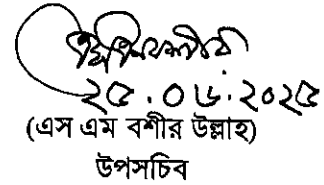 ২৫.০৬.২০২৫
(এস এম বশীর উল্লাহ)
উপসচিব